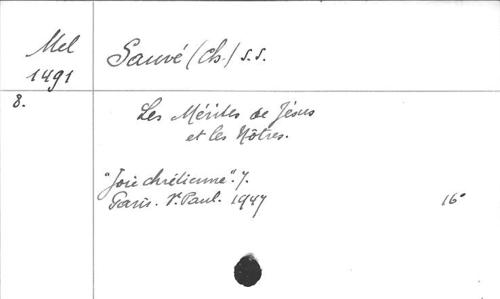 Mel
1491
8.
Sauvé (Ch.) s.s.
Les Mérites de Jésus
et les Nôtres.
"Joie chrétienne". 7.
Paris. St Paul. 1947
16°